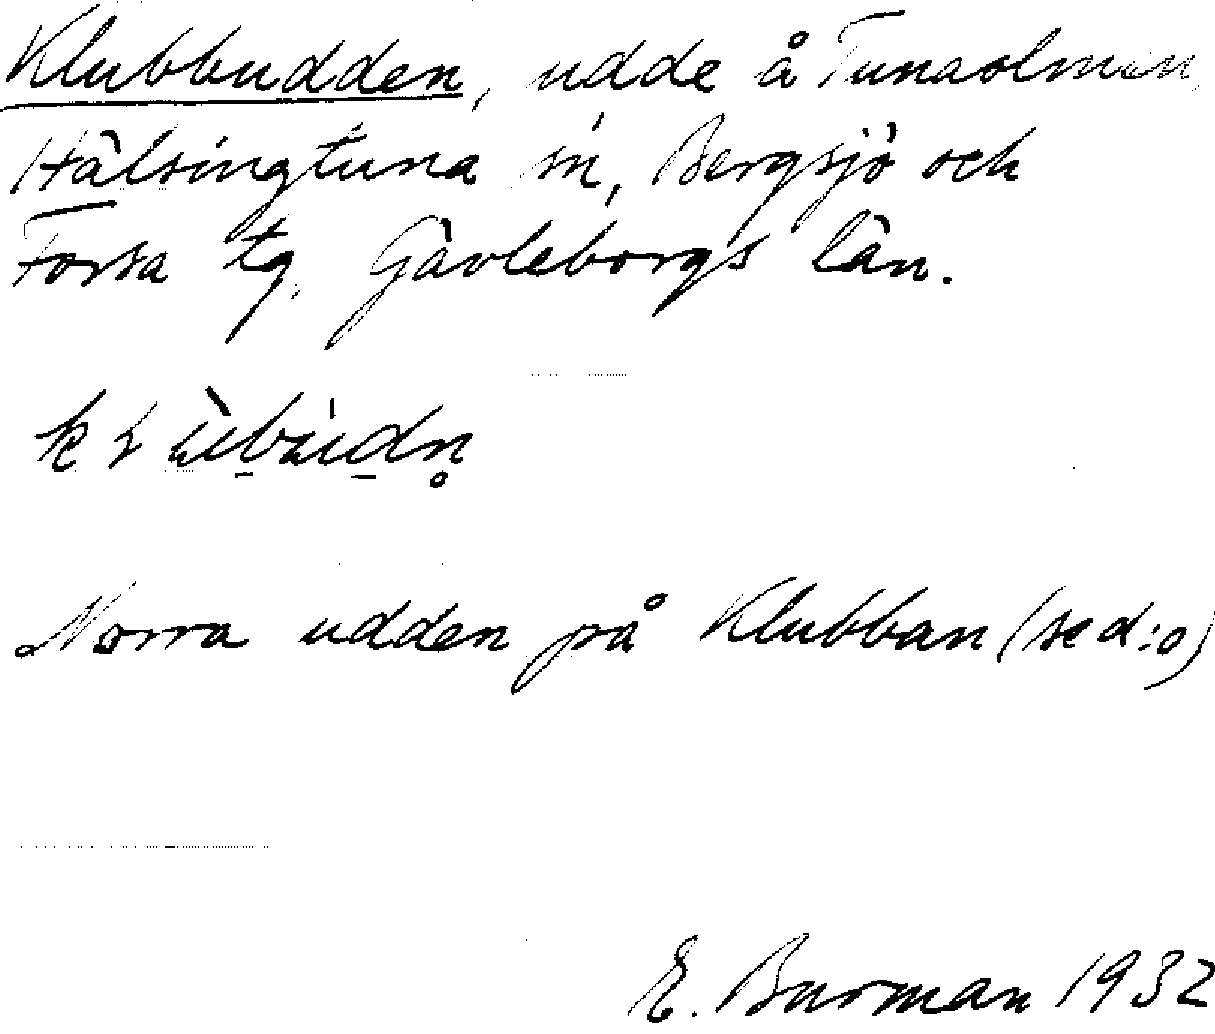 Klubbudden, udde å Tunaolmen,
Hälsingtuna sn, Bergsjö och
Forsa tg, Gävleborgs län.
Norra udden på Klubban (se d:o)
E. Burman 1932